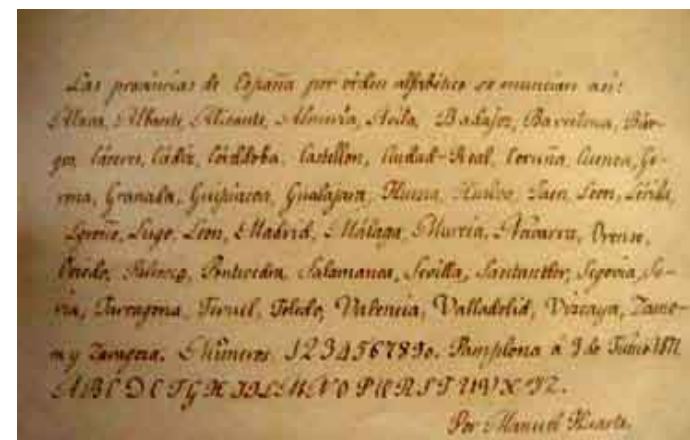 Las provincias de España por orden alfabético se enuncian así:
Alava, Albacete, Alicante, Almería, Avila, Badajoz, Barcelona, Búr-
gos, Cáceres, Cádiz, Córddoba, Castellon, Ciudad-Real, Coruña, Cuenca, Ge-
rona, Granada, Guipúzcoa, Gualajara, Huesca, Huelva, Jaen, Leon, Lérida,
Logroño, Lugo, Leon, Madrid, Málaga, Murcia, Navarra, Orense,
Oviedo, Palencia, Pontevedra, Salamanca, Sevilla, Santander, Segovia, So-
ria, Tarragona, Teruel, Toledo, Valencia, Valladolid, Vizcaya, Zamo-
ra y Zaragoza. Números 1234567890. Pamplona á 9 de
Por Manuel Huarte.